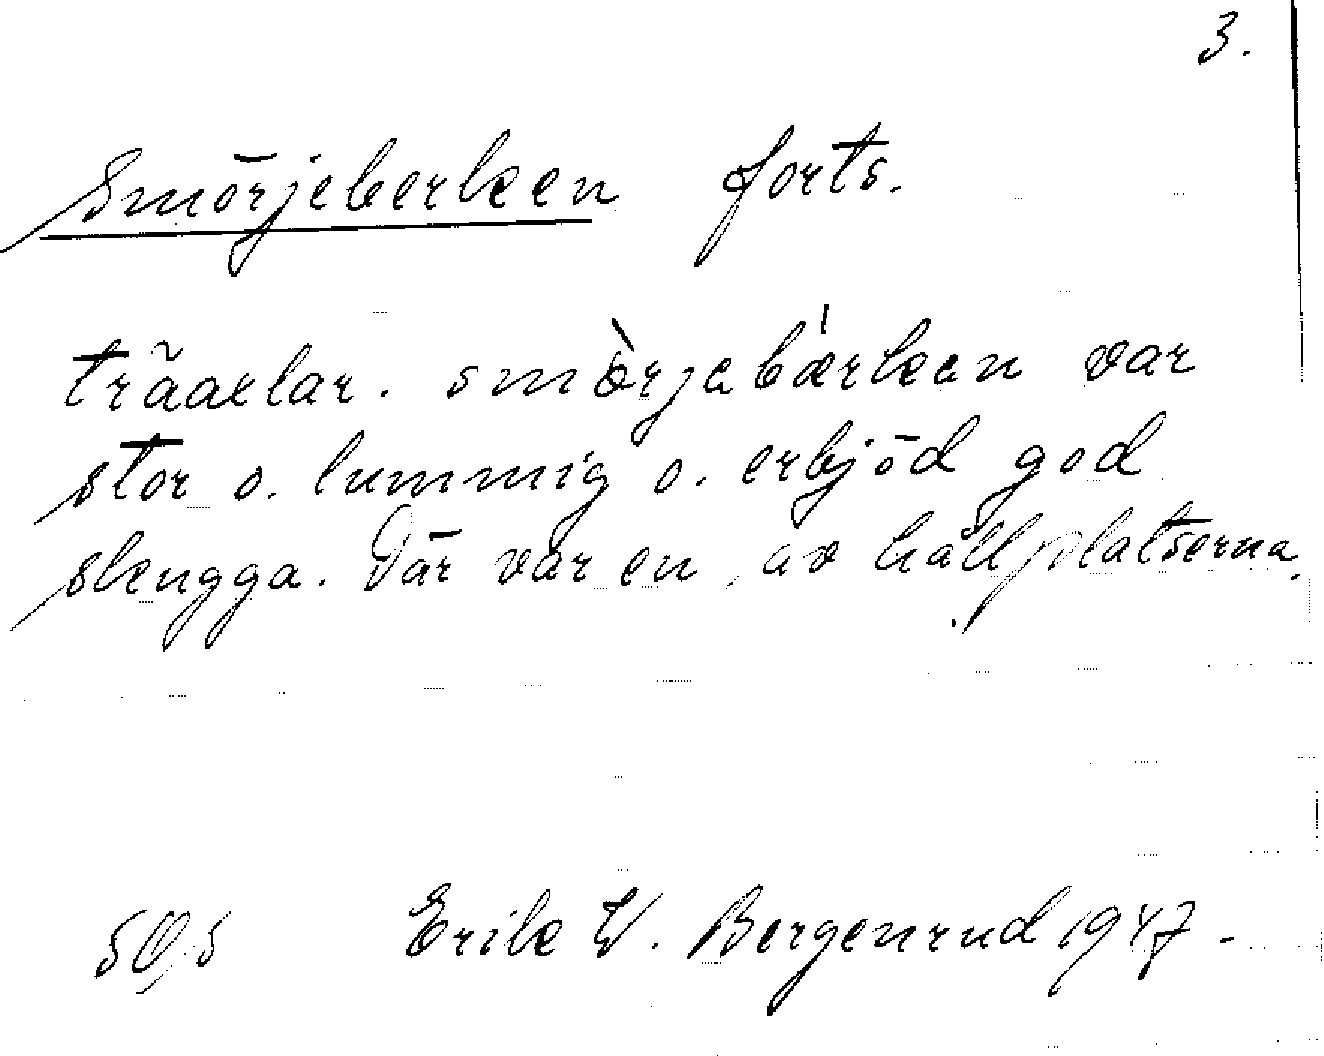 3.
Smörjeberken forts.
träaelar. smòrjebǽrkean var
stor o. lummig o. erbjöd god
skugga. Där var en av hållplatserna.
50,5 Erik W. Bergenrud 1947.